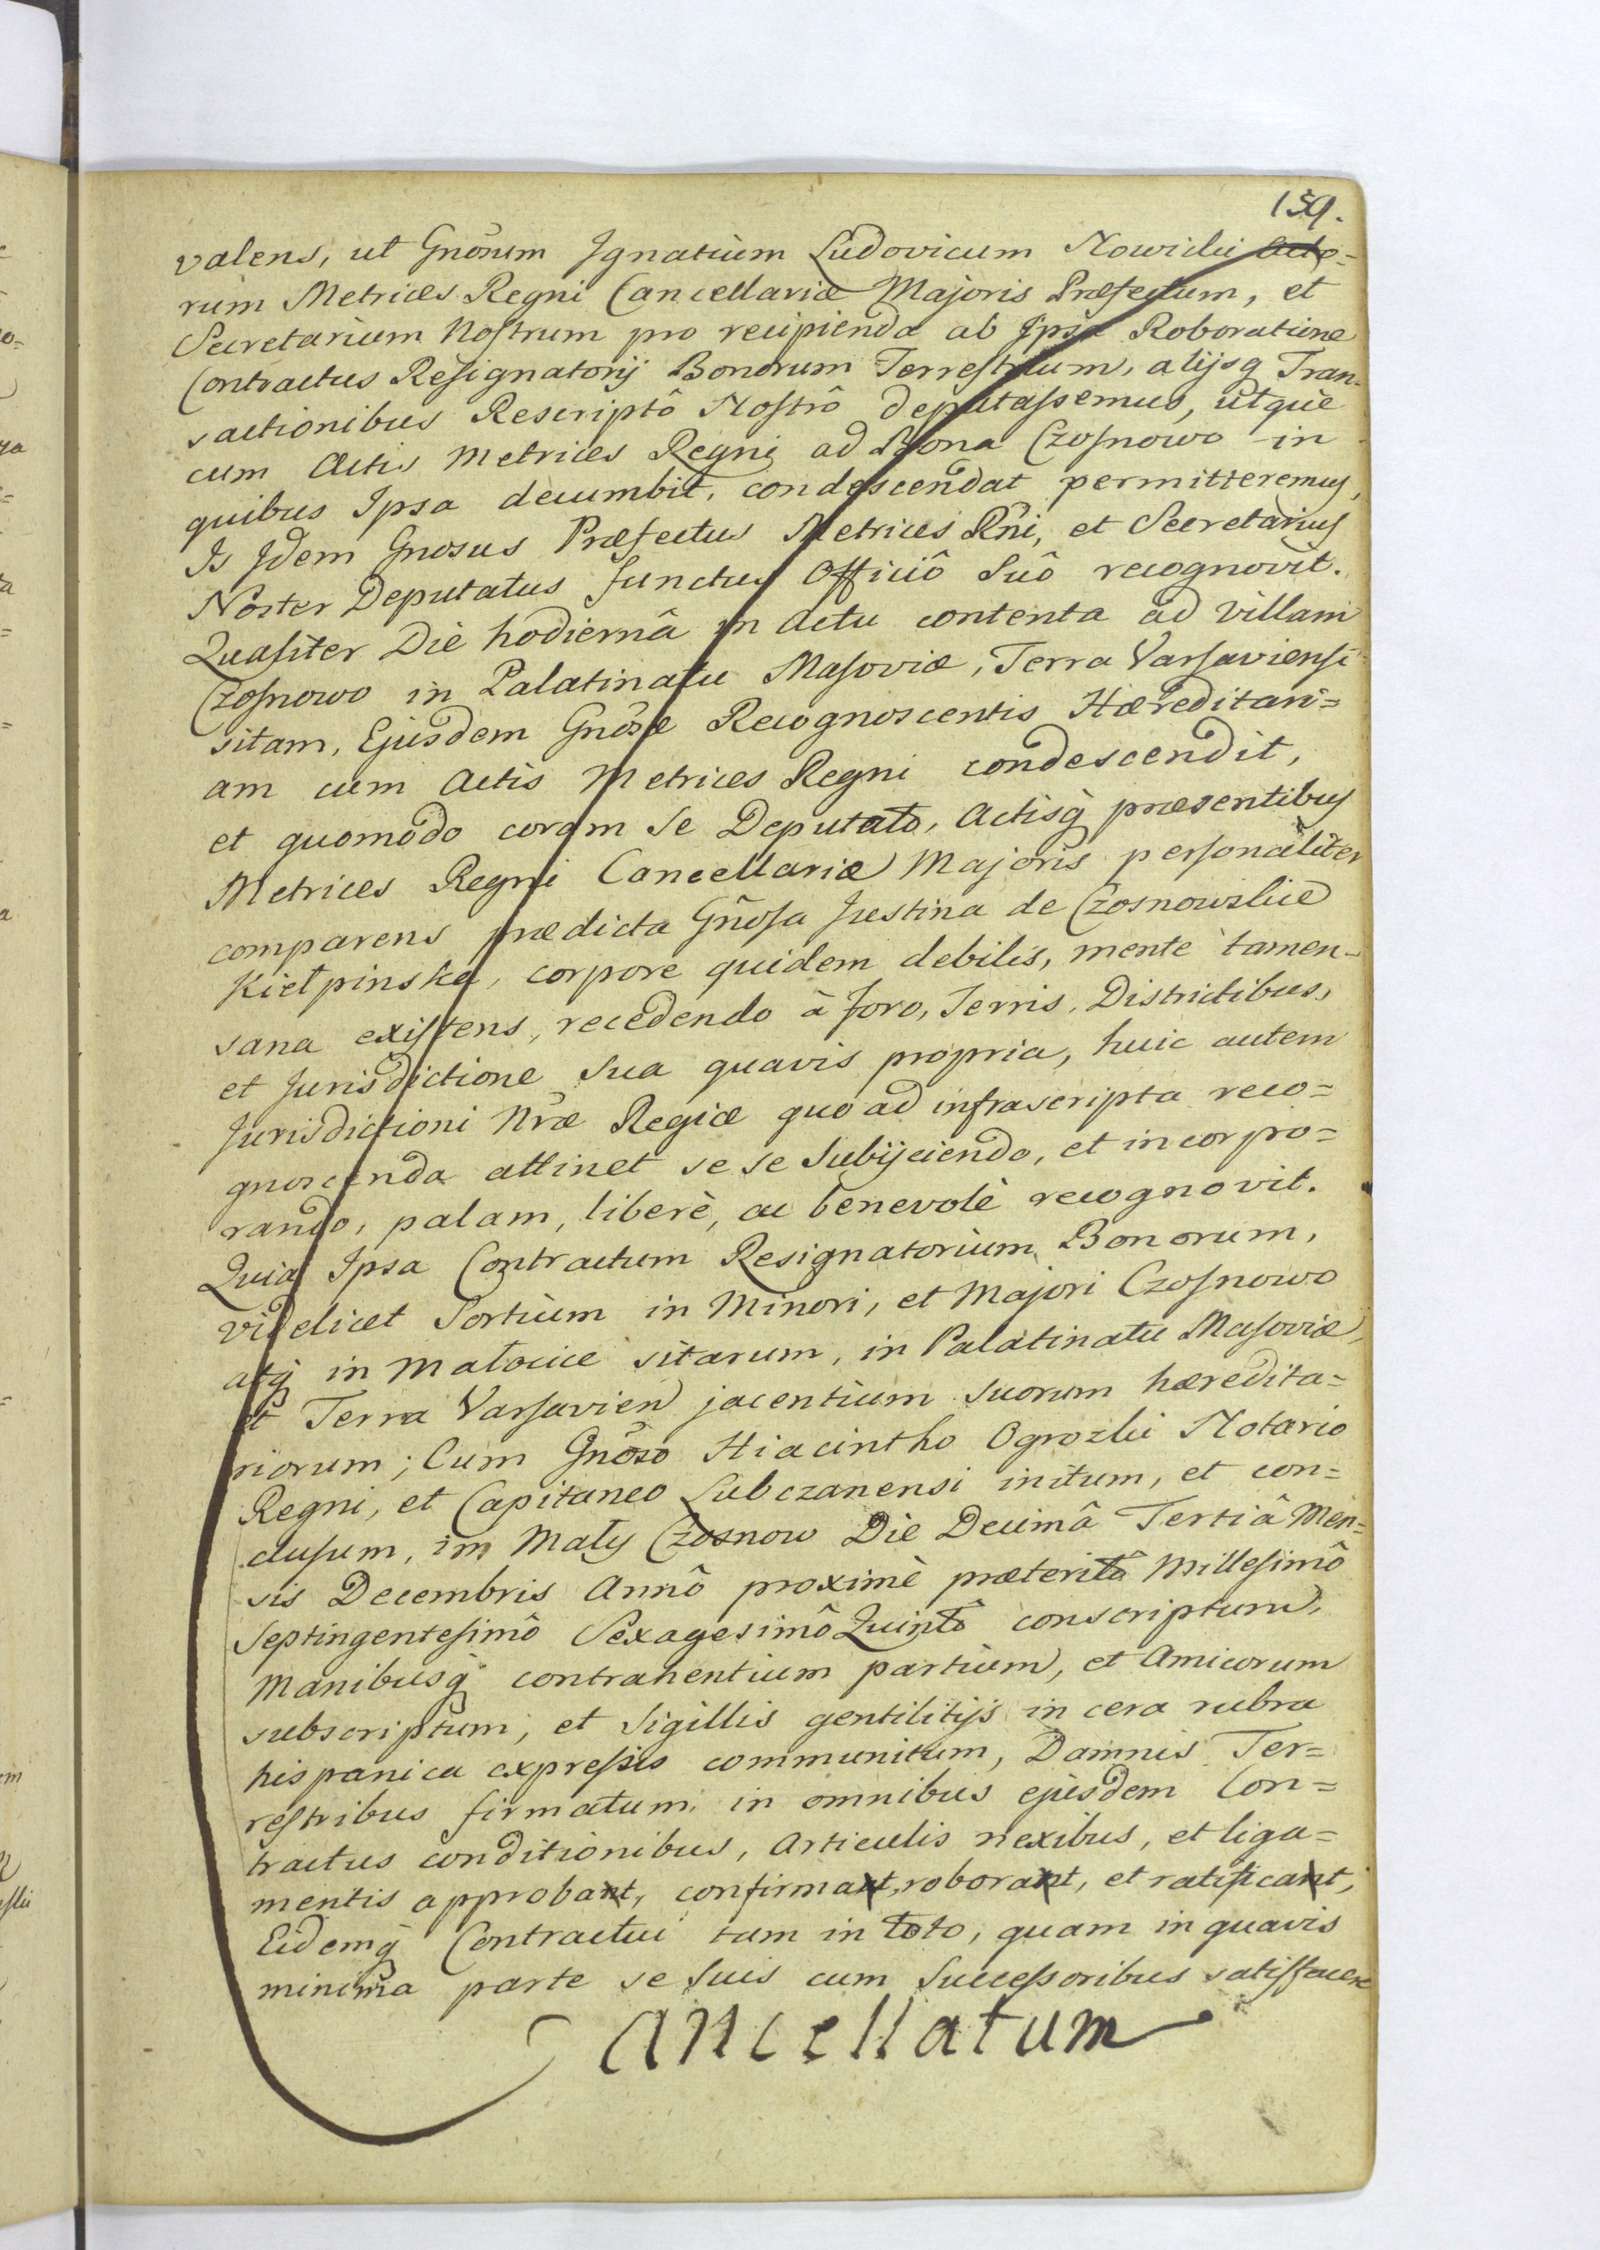 159.
valens, ut Gnõsum Ignatium Ludovicum Nowicki Acto=
rum Metrices Regni Cancellariæ Majoris Præfectum, et
Secretarium Nostrum pro recipienda ab Ipsa Roboratione
Contractus Resignatorij Bonorum Terrestrium, alijsq Tran=
sactionibus Rescriptô Nostrô deputassemus, utque
cum Actis Metrices Regni ad Bona Czosnowo in
quibus Ipsa decumbit, condescendat permitteremus,
Is Idem Gnosus Præfectus Metrices Rñi, et Secretarius
Noster Deputatus functus Officiô Suô recognovit.
Qualiter Die hodiernâ in Actu contenta ad Villam
Czosnowo in Palatinatu Masoviæ, Terra Varsaviensi
sitam, Ejusdem Gnõsæ Recognoscentis Hæreditari=
am cum Actis Metrices Regni condescendit,
et quomodo coram Se Deputato, Actisq̀ præsentibus
Metrices Regni Cancellariæ Majoris personaliter
comparens prædicta Gñosa Justina de Czosnowskie
Kiełpinska, corpore quidem debilis, mente tamen
sana existens, recedendo à foro, Terris, Districtibus,
et Jurisdictione Sua quavis propria, huic autem
Jurisdictioni Nræ Regiæ quo ad infrascripta reco=
gnoscenda attinet se se Subijciendo, et incorpo=
rando, palam, liberè, ac benevolè recognovit.
Quia Ipsa Contractum Resignatorium Bonorum,
videlicet Sortium in Minori, et Majori Czosnowo
atq̀ in Małocice sitarum, in Palatinatu Masoviæ,
et Terra Varsavien jacentium suorum hæredita=
riorum; Cum Gnõso Hiacintho Ogrozki Notario
Regni, et Capitaneo Lubczanensi initum, et con=
clusum, im Mały Czosnow Die Decimâ Tertiâ Men=
sis Decembris Annô proximè præteritô Millesimô
Septingentesimô Sexagesimô Quintô conscriptum,
Manibusq̀ contrahentium partium, et Amicorum
subscriptum, et Sigillis gentilitijs in cera rubra
hispanica expressis communitum, Damnis Ter=
restribus firmatum, in omnibus ejusdem Con=
tractus conditionibus, Articulis nexibus, et liga=
mentis approbant, confirmant, roborant, et ratificant,
Eidemq̀ Contractui tam in toto, quam in quavis
minima parte se Suis cum Successoribus satisfacere
Cancellatum